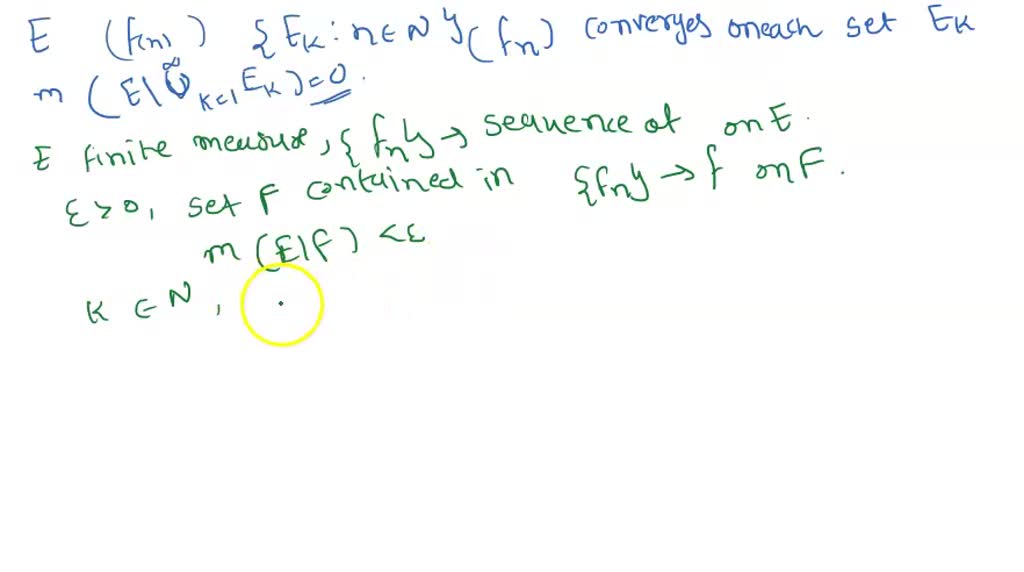 E (f(n)) {E_K : n ∈ N} (f_n) converges on each set E_K
m (E \ ∪^∞_{K=1} E_K) = 0.
E finite measure, {f_n} → sequence of on E.
ε > 0, set F contained in {f_n} → f on F.
m (E \ F) < ε
K ∈ N,